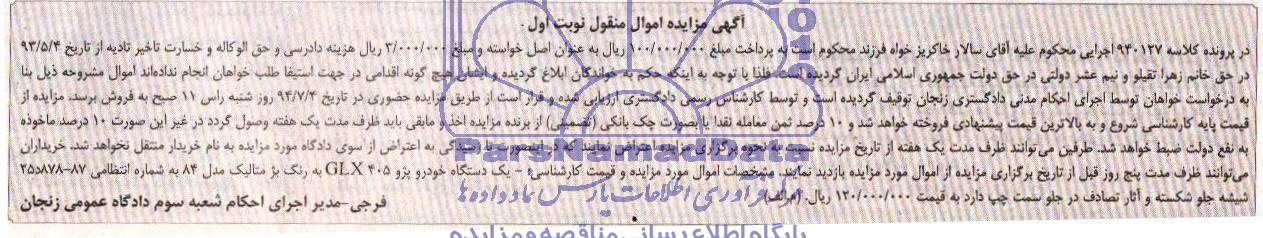 آگهی مزایده اموال منقول نوبت اول
در پرونده کلاسه ۹۴۰۱۲۷ اجرایی محکوم علیه آقای سالار خاکریز خواه فرزند محکوم است به پرداخت مبلغ ۱۰۰/۰۰۰/۰۰۰ ریال به عنوان اصل خواسته و مبلغ ۳/۰۰۰/۰۰۰ ریال هزینه دادرسی و حق الوکاله و خسارت تاخیر تادیه از تاریخ ۹۳/۵/۴
در حق خانم زهرا تقیلو و نیم عشر دولتی در حق دولت جمهوری اسلامی ایران گردیده است. فلذا با توجه به اینکه حکم به خواندگان ابلاغ گردیده و ایشان هیچ گونه اقدامی در جهت استیفا طلب خواهان انجام نداده‌اند اموال مشروحه ذیل بنا
به درخواست خواهان توسط اجرای احکام مدنی دادگستری زنجان توقیف گردیده است و توسط کارشناس رسمی دادگستری ارزیابی شده و قرار است از طریق مزایده حضوری در تاریخ ۹۴/۷/۴ روز شنبه راس ۱۱ صبح به فروش برسد. مزایده از
قیمت پایه کارشناسی شروع و به بالاترین قیمت پیشنهادی فروخته خواهد شد و ۱۰ درصد ثمن معامله نقدا یا بصورت چک بانکی (تضمینی) از برنده مزایده اخذ و مابقی باید ظرف مدت یک هفته وصول گردد در غیر این صورت ۱۰ درصد ماخوذه
به نفع دولت ضبط خواهد شد. طرفین می‌توانند ظرف مدت یک هفته از تاریخ مزایده نسبت به نحوه برگزاری مزایده اعتراض نمایند که در اینصورت تا رسیدگی به اعتراض از سوی دادگاه مورد مزایده به نام خریدار منتقل نخواهد شد. خریداران
می‌توانند ظرف مدت پنج روز قبل از تاریخ برگزاری مزایده از اموال مورد مزایده بازدید نمایند. مشخصات اموال مورد مزایده و قیمت کارشناسی: - یک دستگاه خودرو پژو ۴۰۵ GLX به رنگ بژ متالیک مدل ۸۴ به شماره انتظامی ۸۷-۸۷۸د۲۵
شیشه جلو شکسته و آثار تصادف در جلو سمت چپ دارد به قیمت ۱۲۰/۰۰۰/۰۰۰ ریال. (م/الف)
فرجی-مدیر اجرای احکام شعبه سوم دادگاه عمومی زنجان
ParsNamadData
فرآوری اطلاعات پارس نماد داده‌ها
پایگاه اطلاع رسانی مناقصه و مزایده